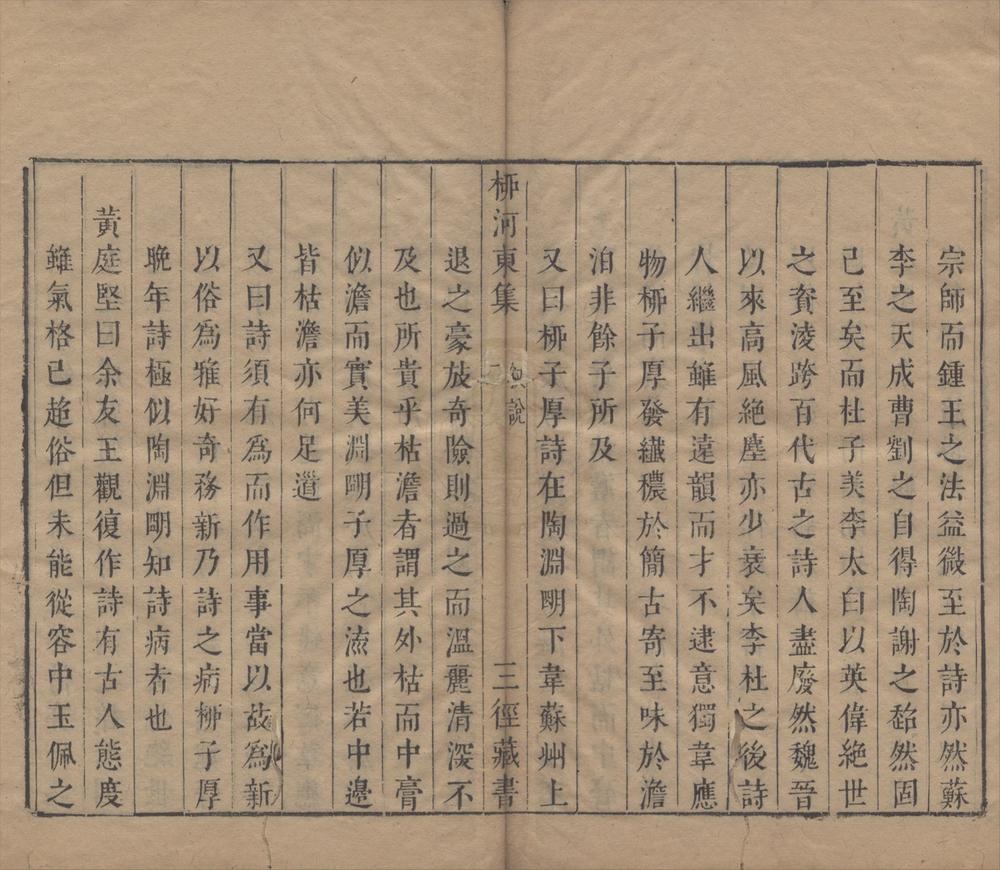 宗師而鍾王之法益微至於詩亦然蘇
李之天成曹劉之自得陶謝之超然固
已至矣而杜子美李太白以英偉絕世
之資淩跨百代古之詩人盡廢然魏晉
以來高風絕塵亦少衰矣李杜之後詩
人繼出雖有遠韻而才不逮意獨韋應
物柳子厚發纖穠於簡古寄至味於澹
泊非餘子所及
又曰柳子厚詩在陶淵明下韋蘇州上
柳河東集
說
三徑藏書
退之豪放奇險則過之而溫麗清深不
及也所貴乎枯澹者謂其外枯而中膏
似澹而實美淵明子厚之流也若中邊
皆枯澹亦何足道
又曰詩須有為而作用事當以故為新
以俗為雅好奇務新乃詩之病柳子厚
晚年詩極似陶淵明知詩病者也
黃庭堅曰余友王觀復作詩有古人態度
雖氣格已超俗但未能從容中玉佩之